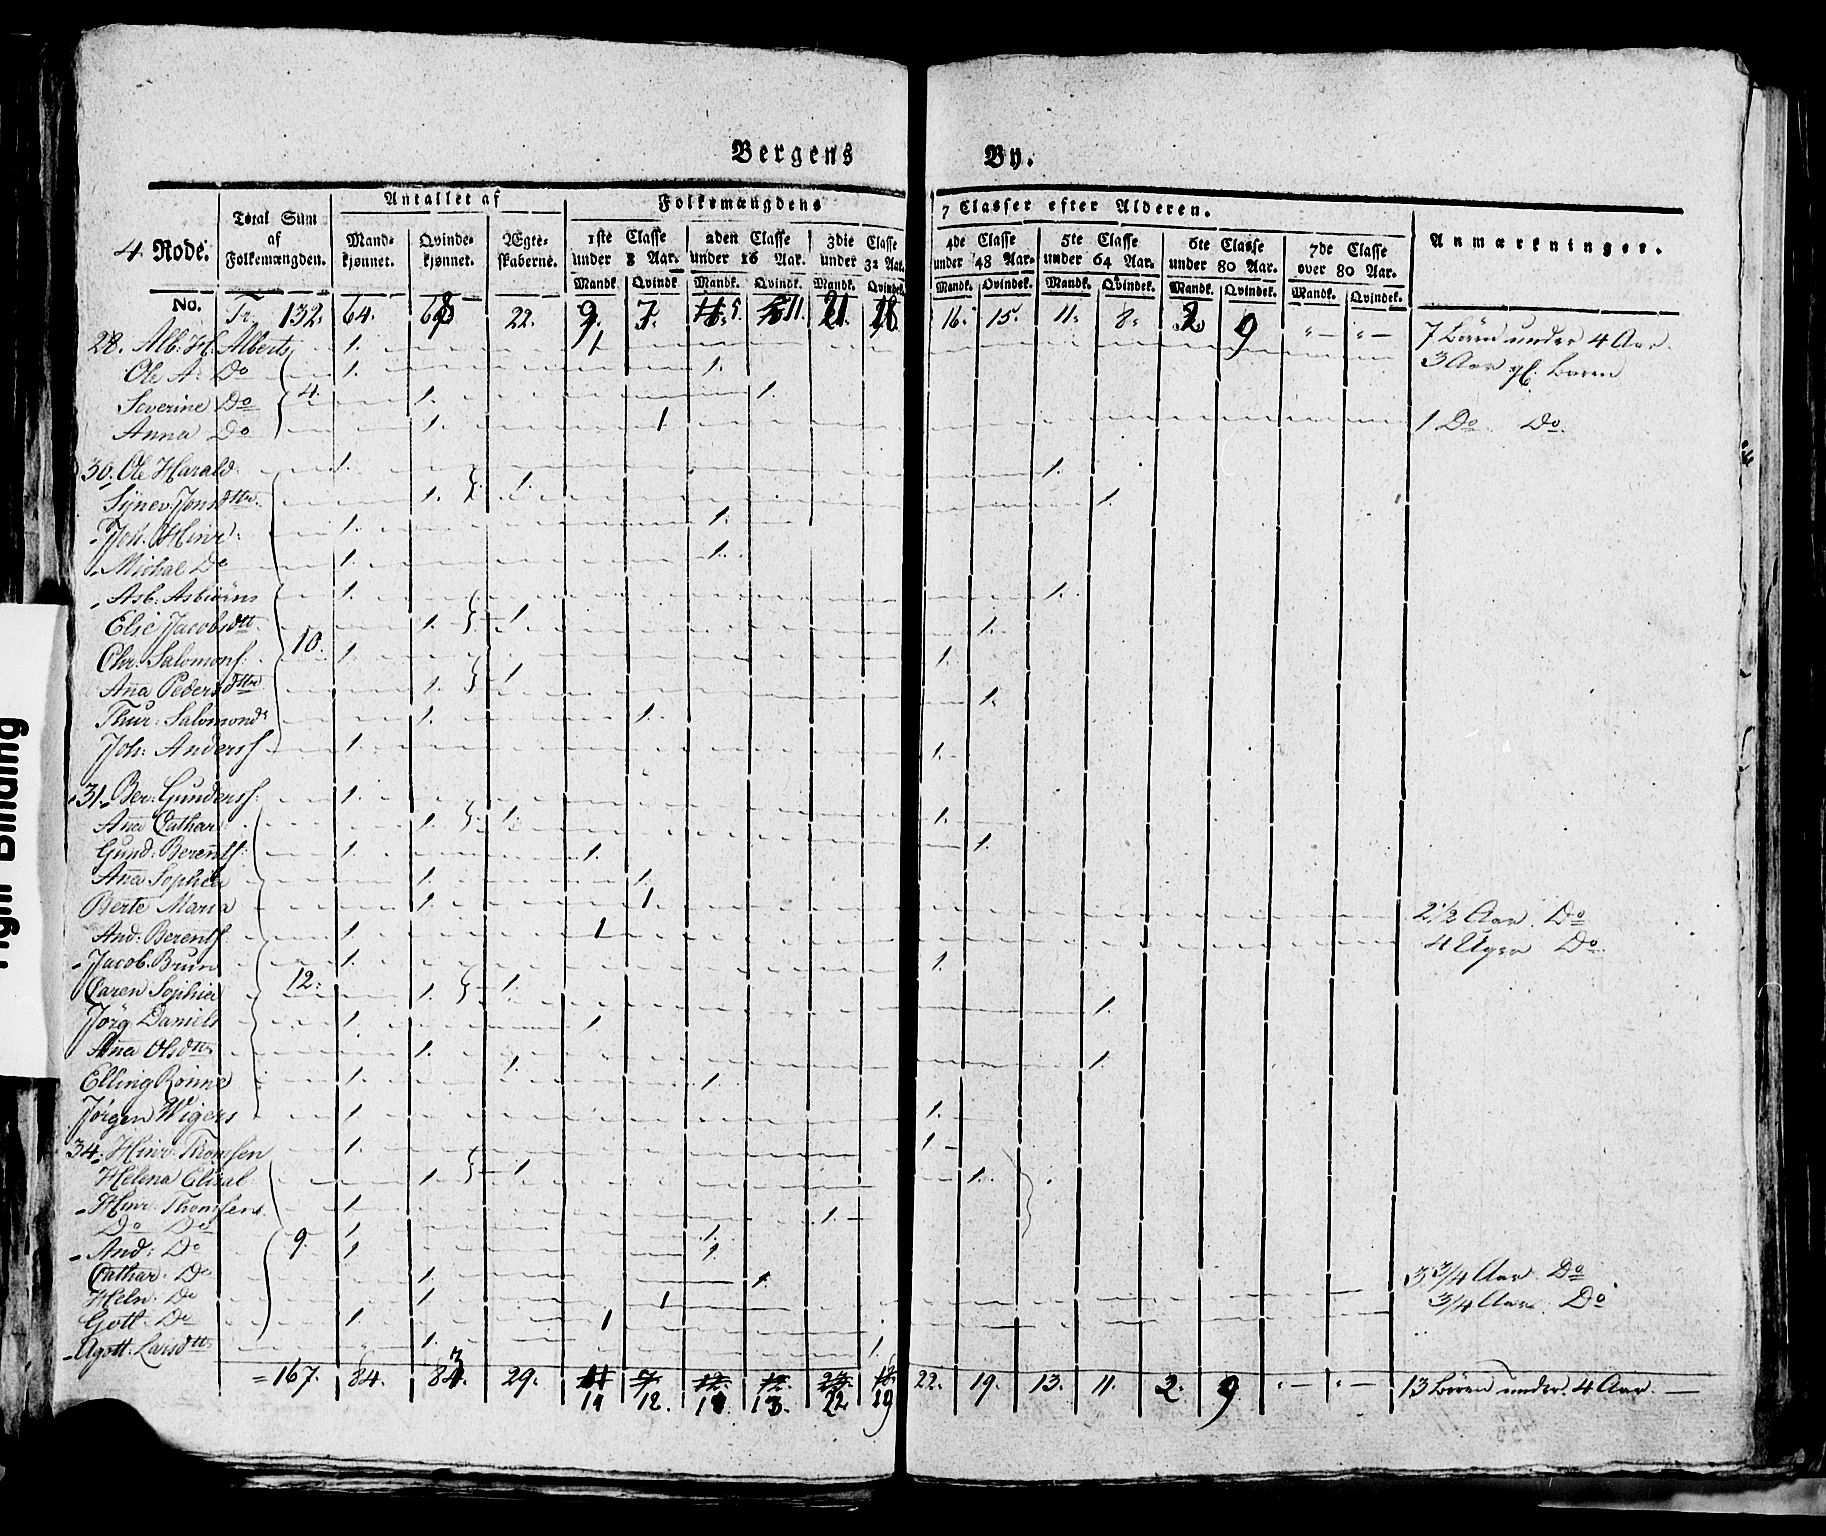 Bergens By.
4. Rode.
Total Sum af Folkemængden.
Antallet af
Mandkjønnet. Qvindekjønnet. Ægteskaberne.
Folkemængdens 7 Classer efter Alderen.
1ste Classe under 8 Aar. 2den Classe under 16 Aar. 3die Classe under 32 Aar. 4de Classe under 48 Aar. 5te Classe under 64 Aar. 6te Classe under 80 Aar. 7de Classe over 80 Aar.
Mandk. Qvindk. Mandk. Qvindk. Mandk. Qvindek. Mandk. Qvindek. Mandk. Qvindek. Mandk. Qvindek. Mandk. Qvindek.
Anmærkninger.
No. Tr. 132. 64. 68 22. 9. 7. 5. 11. 21. 18 16. 15. 11. 8. 2. 9 "— "— 7 Börn under 4 Aar.
28. Alb: H. Alberts 1. 1 3 Aar gl. Baren
Ole A: Do 1. 1.
Severine Do 4. 1. 1.
Anna Do 1. 1 1 Do Do
30. Ole Harald 1. 1.
Synev. Jonsdttr. 1. 1. 1.
Joh. Hinr: 1. 1.
Michal Do 1. 1.
Asb. Asbiörns 1. 1.
Elsé Jacobsdtt. 1. 1. 1.
Chr. Salomons. 10. 1. 1.
Aña Pedersdttr 1. 1. 1.
Thur: Salomonds 1. 1.
Joh: Anders. 1. 1.
31. Ber: Gunders. 1. 1.
Aña Cathar: 1. 1. 1.
Gund: Berents. 1. 1.
Aña Sophia 1. 1.
Berte Maria 1. 1 2 1/2 Aar. Do
And: Berents. 1. 1 4 Uger Do
Jacob Brun 1. 1.
Caren Sophia 12. 1. 1. 1.
Jörg. Daniels 1. 1.
Aña Olsdttr 1. 1. 1.
Elling Rönne 1. 1.
Jörgen Wigers 1. 1.
34. Hinr. Thomsen 1. 1
Helena Elisal. 1. 1. 1.
Hinr. Thomsens 1. 1.
Do Do 1. 1.
And: Do 9. 1 1.
Cathar. Do 1. 1. 3 3/4 Aar Do
Heln. Do 1. 1 3/4 Aar. Do
Gott. Do 1. 1
Agott: Larsdttr 1. 1.
= 167. 84. 83 29. 11 12. 13. 22 19 22. 19. 13. 11. 2. 9 "— "— 13 Börn under 4 Aar.